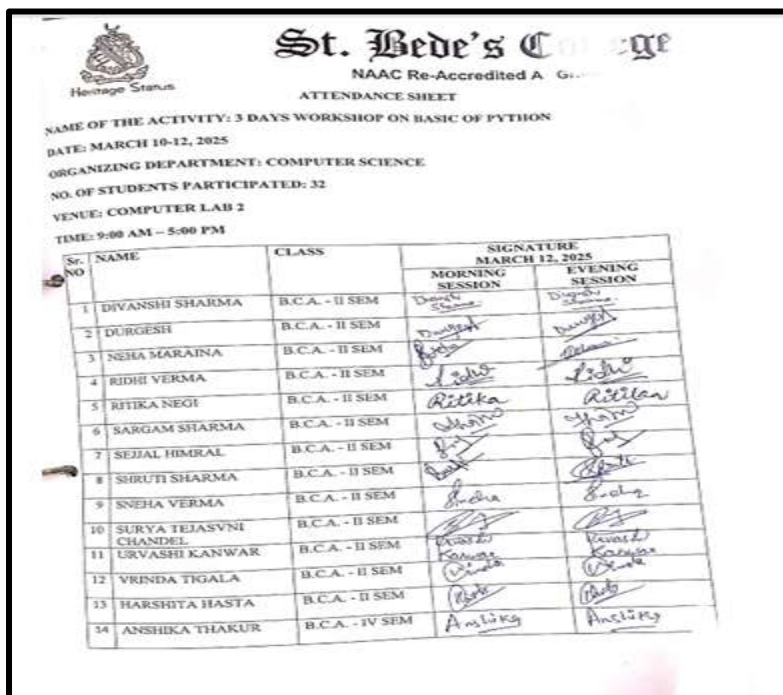 St. Bede's C ge
Heritage Status
NAAC Re-Accredited A
ATTENDANCE SHEET
NAME OF THE ACTIVITY: 3 DAYS WORKSHOP ON BASIC OF PYTHON
DATE: MARCH 10-12, 2025
ORGANIZING DEPARTMENT: COMPUTER SCIENCE
NO. OF STUDENTS PARTICIPATED: 32
VENUE: COMPUTER LAB 2
TIME: 9:00 AM – 5:00 PM
Sr. NO NAME CLASS SIGNATURE MARCH 12, 2025
MORNING SESSION EVENING SESSION
1 DIVANSHI SHARMA B.C.A. - II SEM
2 DURGESH B.C.A. - II SEM Durgesh Durgesh
3 NEHA MARAINA B.C.A. - II SEM
4 RIDHI VERMA B.C.A. - II SEM Ridhi Ridhi
5 RITIKA NEGI B.C.A. - II SEM Ritika Ritika
6 SARGAM SHARMA B.C.A. - II SEM
7 SEJJAL HIMRAL B.C.A. - II SEM
8 SHRUTI SHARMA B.C.A. - II SEM
9 SNEHA VERMA B.C.A. - II SEM Sneha Sneha
10 SURYA TEJASVNI CHANDEL B.C.A. - II SEM
11 URVASHI KANWAR B.C.A. - II SEM Urvashi Kanwar Urvashi Kanwar
12 VRINDA TIGALA B.C.A. - II SEM Vrinda Vrinda
13 HARSHITA HASTA B.C.A. - II SEM
14 ANSHIKA THAKUR B.C.A. - IV SEM Anshika Anshika